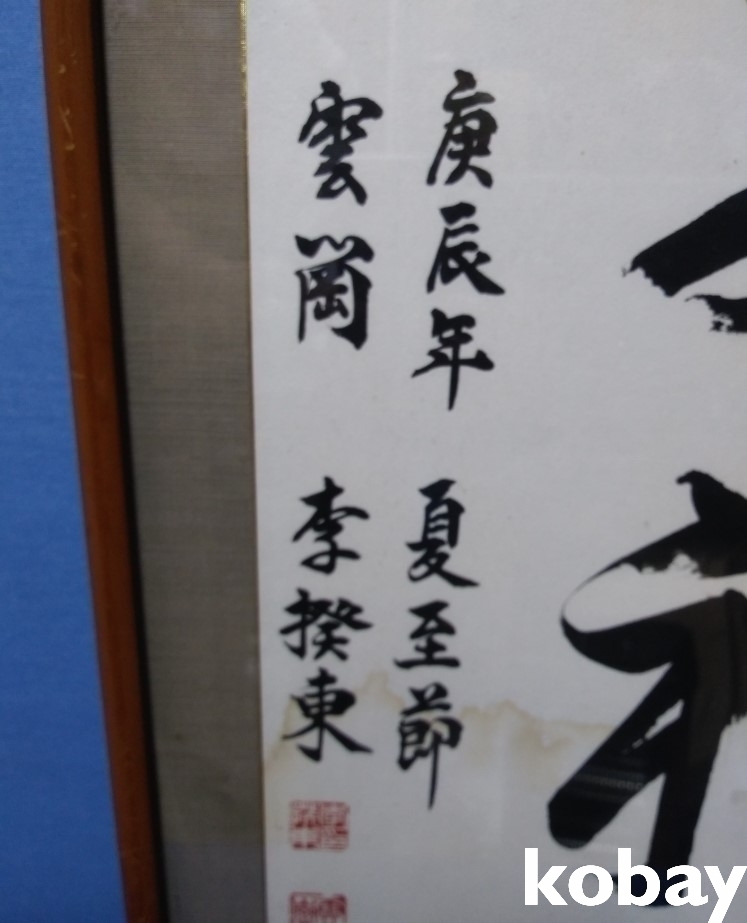 庚辰年 夏至節
雲崗 李揆東
kobay